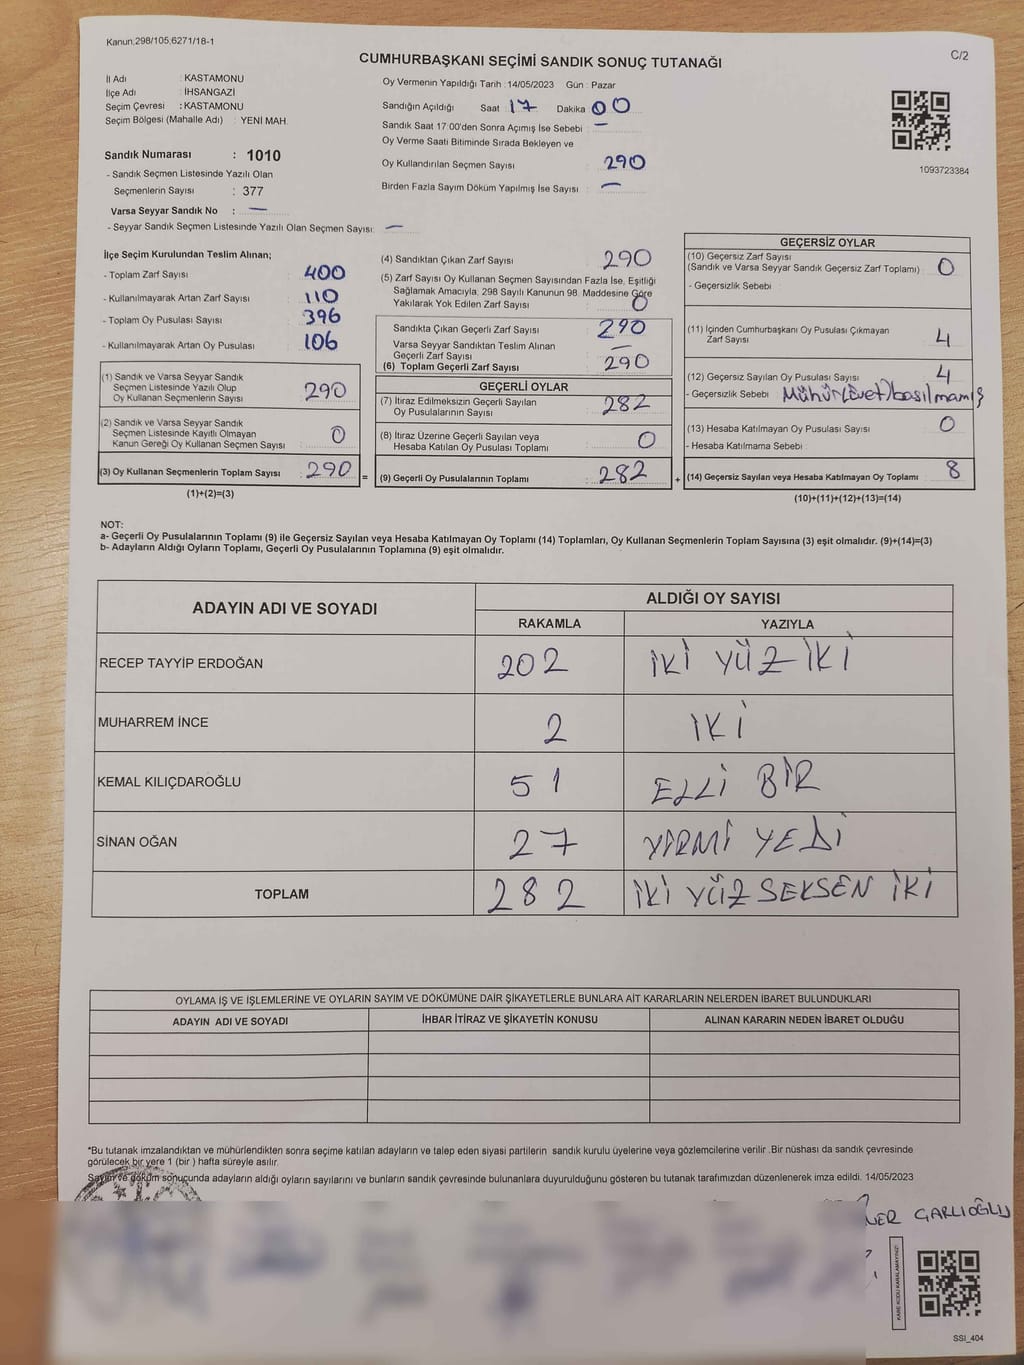 Kanun,298/105,6271/18-1
C/2
CUMHURBAŞKANI SEÇİMİ SANDIK SONUÇ TUTANAĞI
İl Adı : KASTAMONU
İlçe Adı : İHSANGAZİ
Seçim Çevresi : KASTAMONU
Seçim Bölgesi (Mahalle Adı) : YENİ MAH.
Sandık Numarası : 1010
- Sandık Seçmen Listesinde Yazılı Olan
Seçmenlerin Sayısı : 377
Varsa Seyyar Sandık No : —
- Seyyar Sandık Seçmen Listesinde Yazılı Olan Seçmen Sayısı: —
Oy Vermenin Yapıldığı Tarih : 14/05/2023 Gün : Pazar
Sandığın Açıldığı Saat 17 Dakika 00
Sandık Saat 17:00'den Sonra Açımış İse Sebebi : —
Oy Verme Saati Bitiminde Sırada Bekleyen ve
Oy Kullandırılan Seçmen Sayısı : 290
Birden Fazla Sayım Döküm Yapılmış İse Sayısı : —
1093723384
İlçe Seçim Kurulundan Teslim Alınan;
- Toplam Zarf Sayısı : 400
- Kullanılmayarak Artan Zarf Sayısı : 110
- Toplam Oy Pusulası Sayısı : 396
- Kullanılmayarak Artan Oy Pusulası : 106
(1) Sandık ve Varsa Seyyar Sandık
Seçmen Listesinde Yazılı Olup
Oy Kullanan Seçmenlerin Sayısı : 290
(2) Sandık ve Varsa Seyyar Sandık
Seçmen Listesinde Kayıtlı Olmayan
Kanun Gereği Oy Kullanan Seçmen Sayısı : 0
(3) Oy Kullanan Seçmenlerin Toplam Sayısı : 290 =
(1)+(2)=(3)
(4) Sandıktan Çıkan Zarf Sayısı : 290
(5) Zarf Sayısı Oy Kullanan Seçmen Sayısından Fazla İse, Eşitliği
Sağlamak Amacıyla, 298 Sayılı Kanunun 98. Maddesine Göre
Yakılarak Yok Edilen Zarf Sayısı : 0
Sandıkta Çıkan Geçerli Zarf Sayısı : 290
Varsa Seyyar Sandıktan Teslim Alınan
Geçerli Zarf Sayısı : —
(6) Toplam Geçerli Zarf Sayısı : 290
GEÇERLİ OYLAR
(7) İtiraz Edilmeksizin Geçerli Sayılan
Oy Pusulalarının Sayısı : 282
(8) İtiraz Üzerine Geçerli Sayılan veya
Hesaba Katılan Oy Pusulası Toplamı : 0
(9) Geçerli Oy Pusulalarının Toplamı : 282 +
GEÇERSİZ OYLAR
(10) Geçersiz Zarf Sayısı :
(Sandık ve Varsa Seyyar Sandık Geçersiz Zarf Toplamı) 0
- Geçersizlik Sebebi :
(11) İçinden Cumhurbaşkanı Oy Pusulası Çıkmayan
Zarf Sayısı : 4
(12) Geçersiz Sayılan Oy Pusulası Sayısı : 4
- Geçersizlik Sebebi : Mühür(Evet)basılmamış
(13) Hesaba Katılmayan Oy Pusulası Sayısı : 0
- Hesaba Katılmama Sebebi :
(14) Geçersiz Sayılan veya Hesaba Katılmayan Oy Toplamı : 8
(10)+(11)+(12)+(13)=(14)
NOT:
a- Geçerli Oy Pusulalarının Toplamı (9) ile Geçersiz Sayılan veya Hesaba Katılmayan Oy Toplamı (14) Toplamları, Oy Kullanan Seçmenlerin Toplam Sayısına (3) eşit olmalıdır. (9)+(14)=(3)
b- Adayların Aldığı Oyların Toplamı, Geçerli Oy Pusulalarının Toplamına (9) eşit olmalıdır.
ADAYIN ADI VE SOYADI ALDIĞI OY SAYISI
RAKAMLA YAZIYLA
RECEP TAYYİP ERDOĞAN 202 İKİ YÜZ İKİ
MUHARREM İNCE 2 İKİ
KEMAL KILIÇDAROĞLU 51 ELLİ BİR
SİNAN OĞAN 27 YİRMİ YEDİ
TOPLAM 282 İKİ YÜZ SEKSEN İKİ
OYLAMA İŞ VE İŞLEMLERİNE VE OYLARIN SAYIM VE DÖKÜMÜNE DAİR ŞİKAYETLERLE BUNLARA AİT KARARLARIN NELERDEN İBARET BULUNDUKLARI
ADAYIN ADI VE SOYADI İHBAR İTİRAZ VE ŞİKAYETİN KONUSU ALINAN KARARIN NEDEN İBARET OLDUĞU
*Bu tutanak imzalandıktan ve mühürlendikten sonra seçime katılan adayların ve talep eden siyasi partilerin sandık kurulu üyelerine ve gözlemcilerine verilir .Bir nüshası da sandık çevresinde
görülecek bir yere 1 (bir ) hafta süreyle asılır.
Sayım ve döküm sonucunda adayların aldığı oyların sayılarını ve bunların sandık çevresinde bulunanlara duyurulduğunu gösteren bu tutanak tarafımızdan düzenlenerek imza edildi. 14/05/2023
GARLIOĞLU
KARE KODU KARALAMAYINIZ!
SSI_404